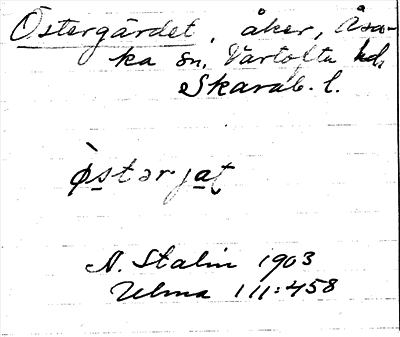 Östergärdet, åker, Åsa-
ka sn, Vartofta hd,
Skarab. l.
östərjat
N. Stalin 1903
Ulma 111:458